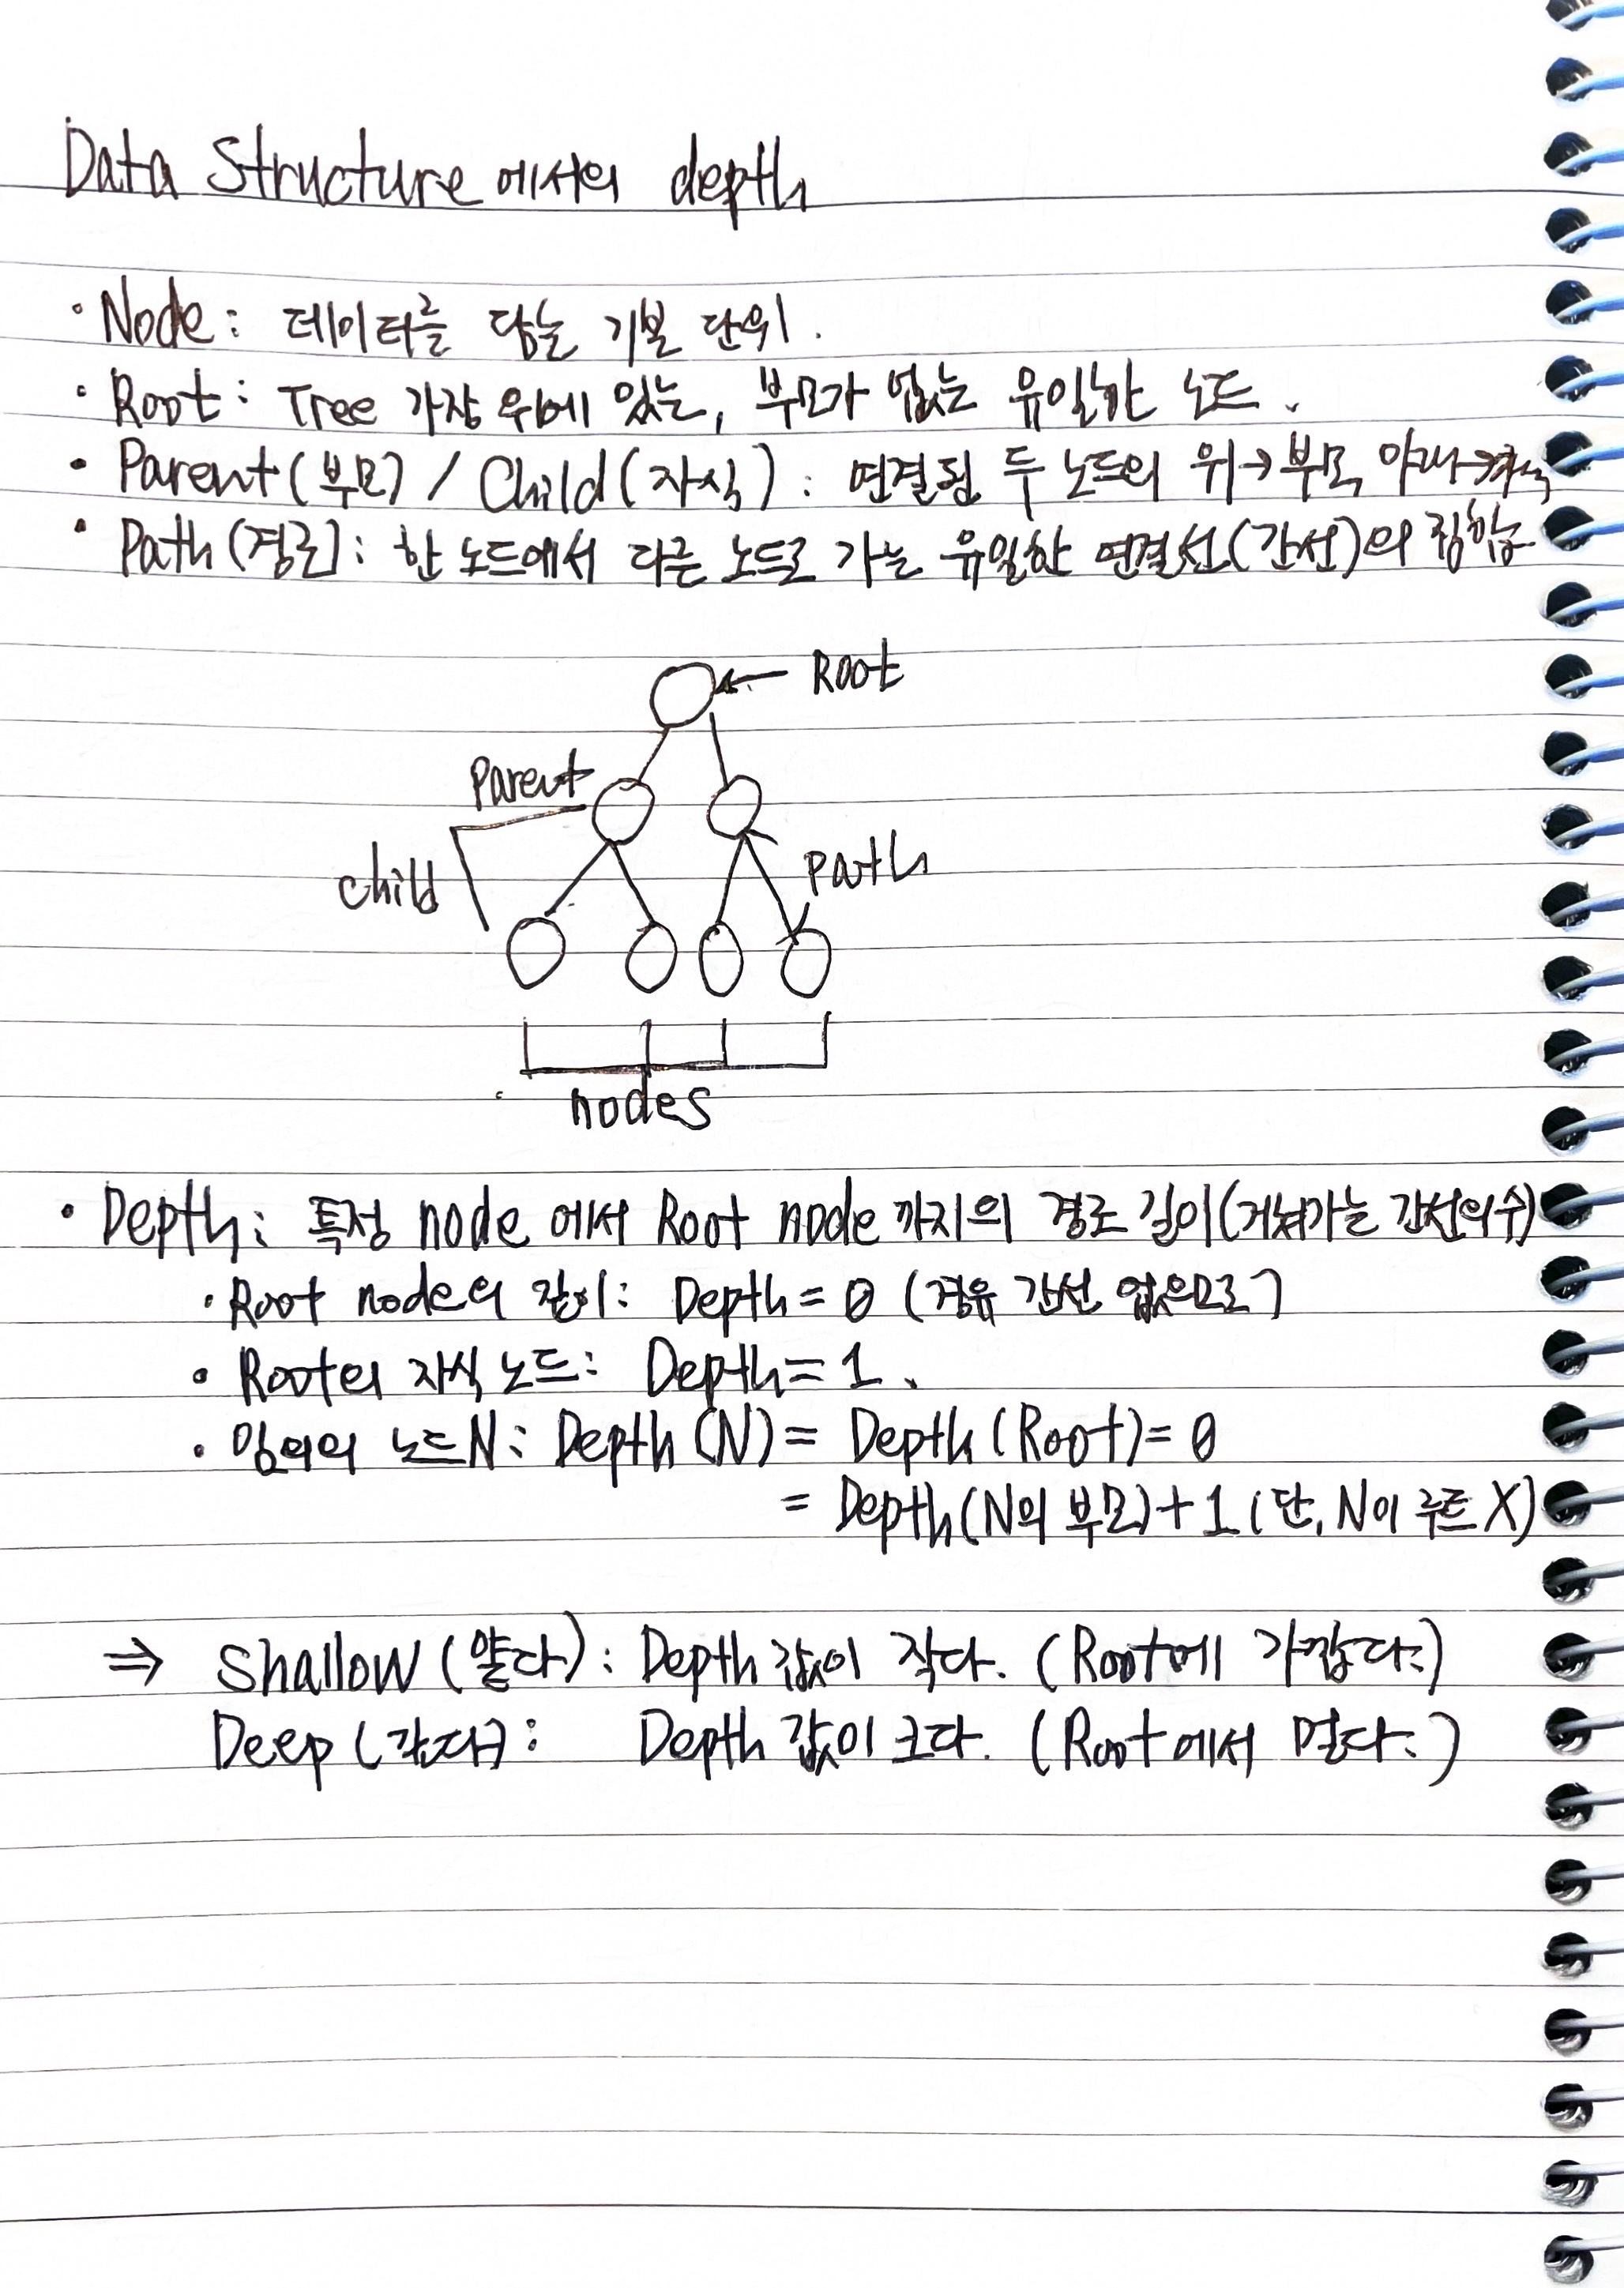 Data Structure에서의 depth
· Node : 데이터를 담는 기본 단위.
· Root : Tree 가장 위에 있는, 부모가 없는 유일한 노드.
· Parent(부모) / Child(자식) : 연결된 두 노드의 위→부모, 아래→자식
· Path(경로) : 한 노드에서 다른 노드로 가는 유일한 연결선(간선)의 집합
← Root
Parent
child
Path
nodes
· Depth : 특정 node에서 Root node까지의 경로 길이(거쳐가는 간선의 수)
· Root node의 깊이 : Depth = 0 (경유 간선 없으므로)
· Root의 자식 노드 : Depth = 1.
· 임의의 노드 N : Depth(N) = Depth(Root) = 0
= Depth(N의 부모) + 1 (단, N이 루트 X)
⇒ Shallow (얕다) : Depth 값이 작다. (Root에 가깝다.)
Deep (깊다) : Depth 값이 크다. (Root에서 멀다.)